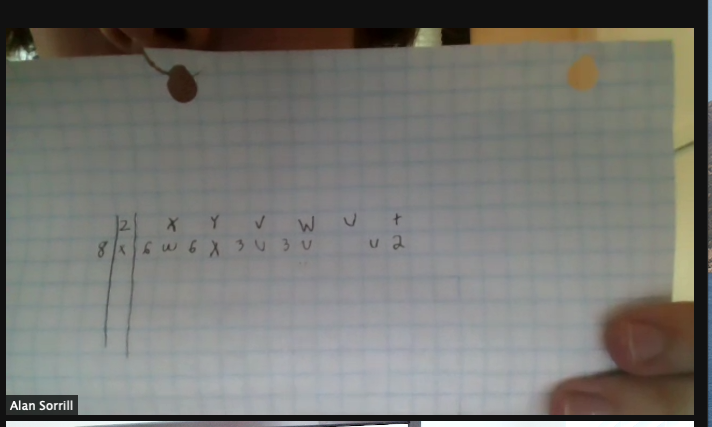 2 X Y V W U t
8 x 6 w 6 X 3 U 3 U U 2
Alan Sorrill